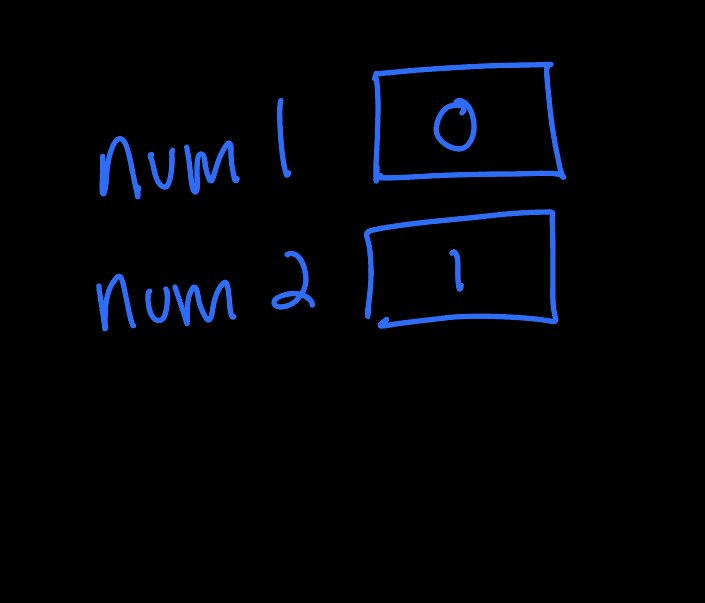 num 1 0
num 2 1